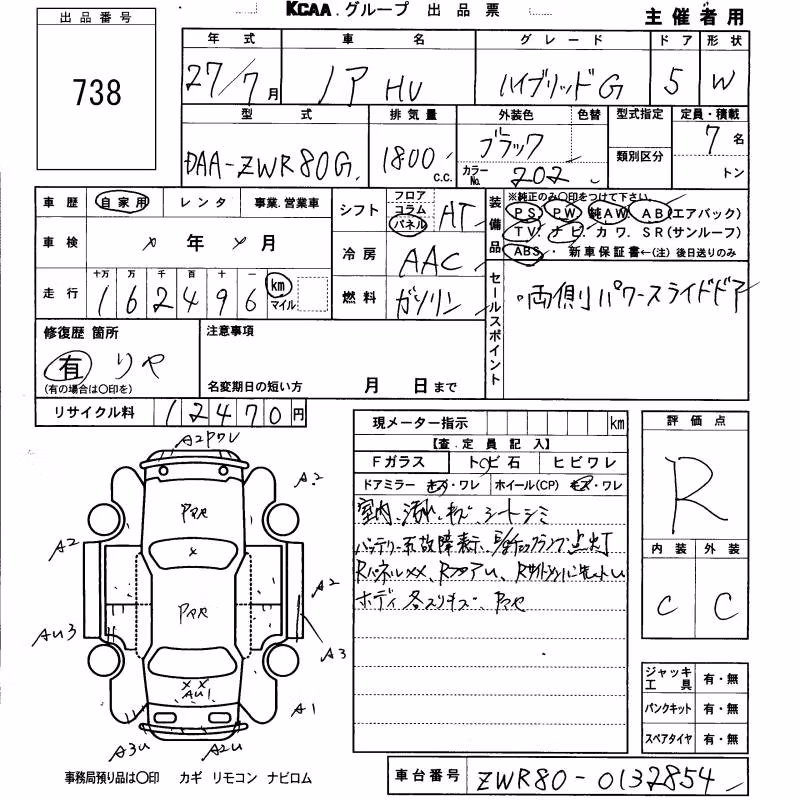 KCAA グループ 出品票
主催者用
出品番号
738
年式 車名 グレード ドア 形状
27/7月 ノア HV ハイブリッドG 5 W
型式 排気量 外装色 色替 型式指定 定員・積載
DAA-ZWR80G 1800 c.c. ブラック 7名
カラーNo. 202 類別区分 トン
車歴 自家用 レンタ 事業.営業車
シフト フロア コラム パネル AT
装備品 ※純正のみ○印をつけて下さい。
PS PW 純AW AB(エアバック)
TV. ナビ. カワ. SR(サンルーフ)
ABS ・新車保証書←(注)後日送りのみ
車検 年 月
冷房 AAC
走行 十万 万 千 百 十 一
162496 km マイル
燃料 ガソリン
セールスポイント
・両側パワースライドドア
修復歴 箇所
有 リヤ
(有の場合は○印を)
注意事項
名変期日の短い方 月 日まで
リサイクル料 12470円
現メーター指示 km
【査.定員記入】
Fガラス トビ石 ヒビワレ
ドアミラー キズ・ワレ ホイール(CP) キズ・ワレ
室内、汚れ、キズ、シートシミ
バッテリー系故障表示、点灯
RパネルXX、RフロアU、
ボディ各スリキズ
評価点
R
内装 外装
C C
A2
A2
A2
AU3
A3
XX
AU1
A1
A3U
A2U
ジャッキ工具 有・無
パンクキット 有・無
スペアタイヤ 有・無
事務局預り品は○印 カギ リモコン ナビロム
車台番号 ZWR80-0132854